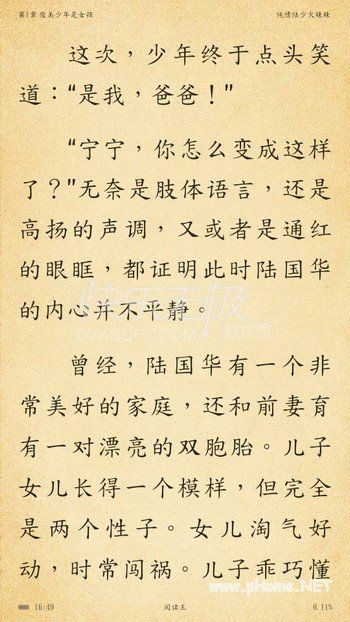 第1章 俊美少年是女孩 纯情陆少火辣辣
这次，少年终于点头笑
道：“是我，爸爸！”
“宁宁，你怎么变成这样
了？”无奈是肢体语言，还是
高扬的声调，又或者是通红
的眼眶，都证明此时陆国华
的内心并不平静。
曾经，陆国华有一个非
常美好的家庭，还和前妻育
有一对漂亮的双胞胎。儿子
女儿长得一个模样，但完全
是两个性子。女儿淘气好
动，时常闯祸。儿子乖巧懂
www.pHome.NET
16:49 阅读王 0.11%